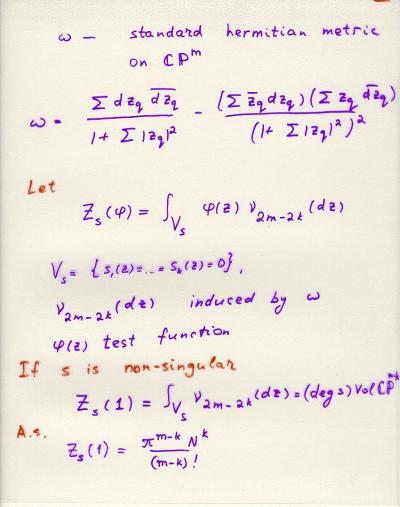 ω — standard hermitian metric
on ℂP^m
ω = (Σ dz_q \overline{dz_q}) / (1 + Σ |z_q|²) − ((Σ \bar{z}_q dz_q)(Σ z_q \overline{dz_q})) / (1 + Σ |z_q|²)²
Let
Z_s(φ) = ∫_{V_s} φ(z) ν_{2m-2k}(dz)
V_s = {s_1(z)=...=s_k(z)=0},
ν_{2m-2k}(dz) induced by ω
φ(z) test function
If s is non-singular
Z_s(1) = ∫_{V_s} ν_{2m-2k}(dz) = (deg s) Vol ℂP^{m-k}
A.s.
Z_s(1) = π^{m-k} N^k / (m-k)!